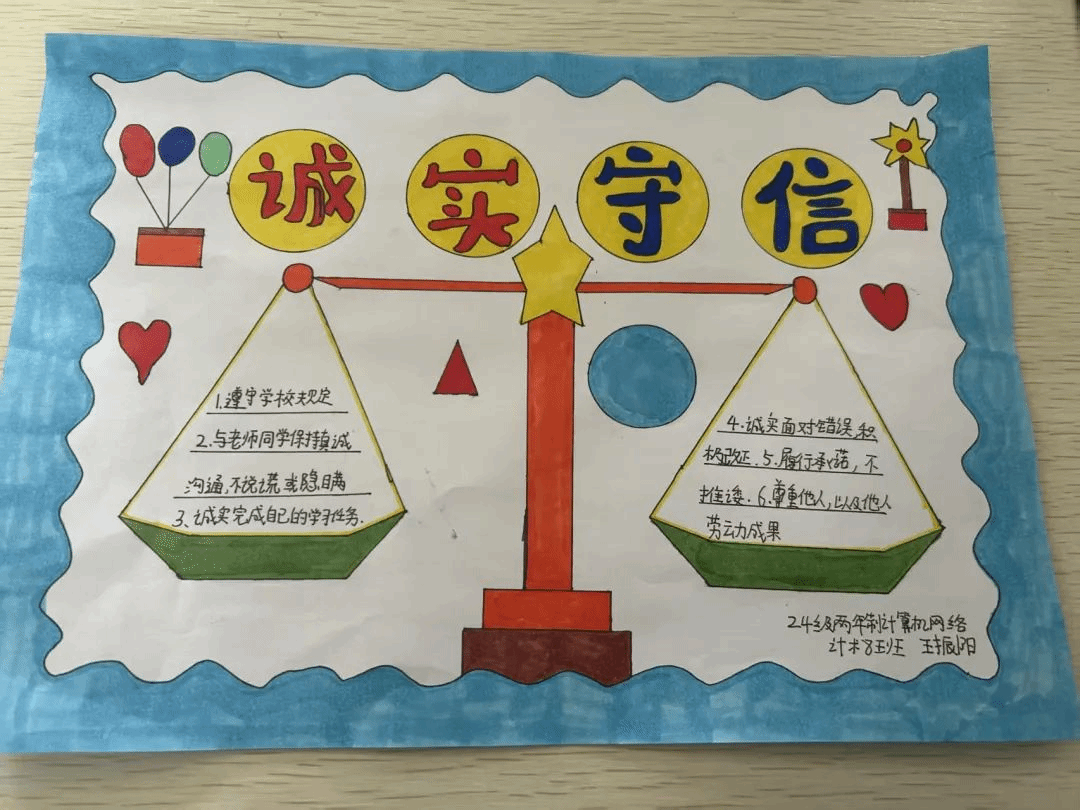 诚实守信
1.遵守学校规定
2.与老师同学保持真诚
沟通,不说谎或隐瞒
3、诚实完成自己的学习任务.
4.诚实面对错误,积
极改正.5.履行承诺,不
推诿.6.尊重他人,以及他人
劳动成果
24级两年制计算机网络
计术8班 王振阳